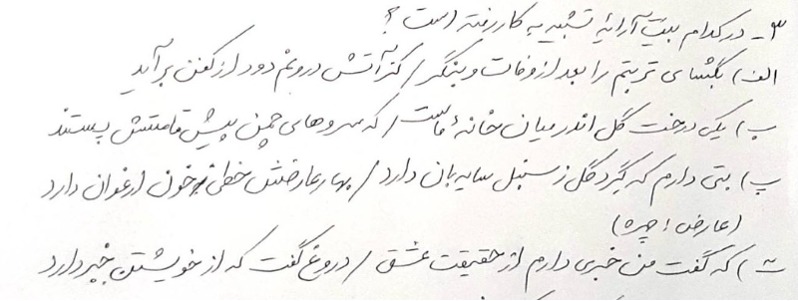 ۳- در کدام بیت آرایهٔ تشبیه به کار رفته است؟
الف) بگشای تربتم را بعد از وفات و بنگر / کز آتش درونم دود از کفن برآید
ب) یکی درخت گل اندر میان خانهٔ ماست / که سروهای چمن پیش قامتش پستند
پ) بتی دارم که گرد گل ز سنبل سایه بان دارد / بهار عارضش خطی به خون ارغوان دارد
(عارض: چهره)
ت) که گفت من خبری دارم از حقیقت عشق / دروغ گفت که از خویشتن خبر دارد